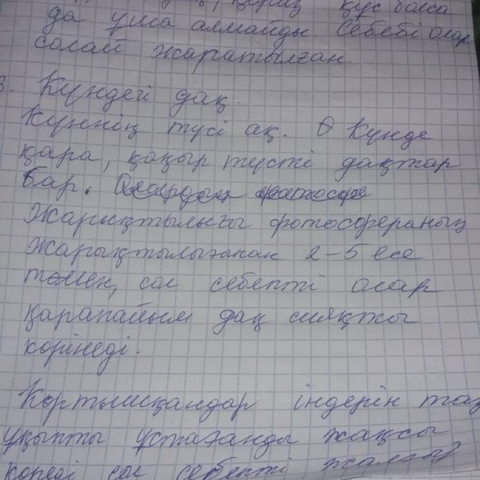 құс болса
да ұша алмайды. Себебі олар
солай жаратылған.
3. Күндегі дақ.
Күннің түсі ақ. Күнде
қара, қоңыр түсті дақтар
бар.
Жарықтылығы фотосфераның
жарықтылығынан 2-5 есе
төмен, сол себепті олар
қарапайым дақ сияқты
көрінеді.
Көртышқандар індерін таза
ұқыпты ұстағанды жақсы
көреді сол себепті